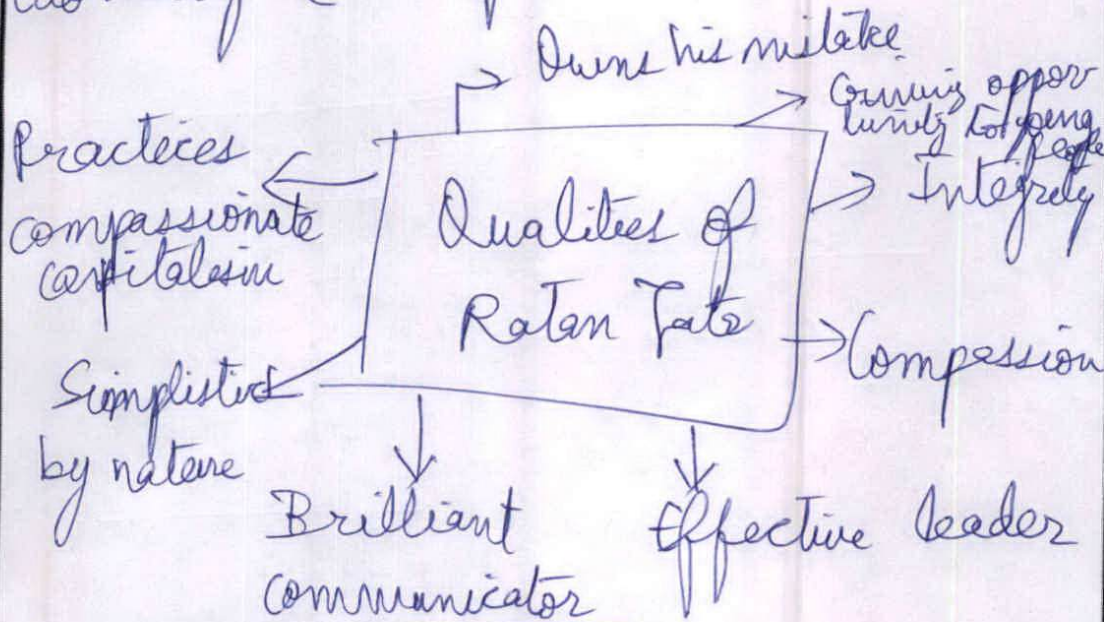 Owns his mistake
Giving oppor
tunity to young
people
Integrity
Practices
compassionate
capitalism
Qualities of
Ratan Tata
Compassion
Simplistic
by nature
Brilliant
communicator
Effective leader